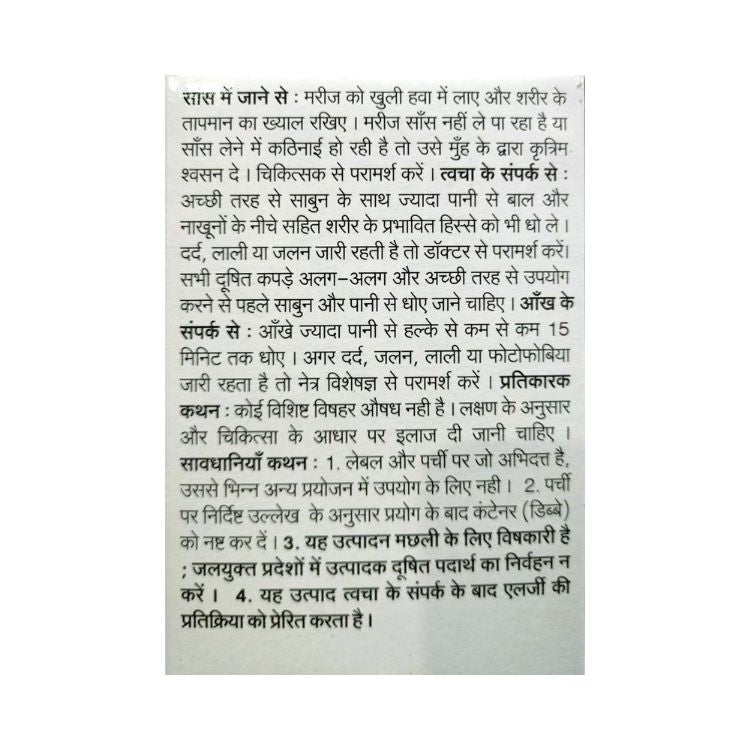 साँस में जाने से : मरीज को खुली हवा में लाए और शरीर के
तापमान का ख्याल रखिए । मरीज साँस नहीं ले पा रहा है या
साँस लेने में कठिनाई हो रही है तो उसे मुँह के द्वारा कृत्रिम
श्वसन दे । चिकित्सक से परामर्श करें । त्वचा के संपर्क से :
अच्छी तरह से साबुन के साथ ज्यादा पानी से बाल और
नाखूनों के नीचे सहित शरीर के प्रभावित हिस्से को भी धो ले ।
दर्द, लाली या जलन जारी रहती है तो डॉक्टर से परामर्श करें।
सभी दूषित कपड़े अलग-अलग और अच्छी तरह से उपयोग
करने से पहले साबुन और पानी से धोए जाने चाहिए । आँख के
संपर्क से : आँखे ज्यादा पानी से हल्के से कम से कम 15
मिनिट तक धोए । अगर दर्द, जलन, लाली या फोटोफोबिया
जारी रहता है तो नेत्र विशेषज्ञ से परामर्श करें । प्रतिकारक
कथन : कोई विशिष्ट विषहर औषध नही है । लक्षण के अनुसार
और चिकित्सा के आधार पर इलाज दी जानी चाहिए ।
सावधानियाँ कथन : 1. लेबल और पर्ची पर जो अभिदत्त है,
उससे भिन्न अन्य प्रयोजन में उपयोग के लिए नही । 2. पर्ची
पर निर्दिष्ट उल्लेख के अनुसार प्रयोग के बाद कंटेनर (डिब्बे)
को नष्ट कर दें । 3. यह उत्पादन मछली के लिए विषकारी है
; जलयुक्त प्रदेशों में उत्पादक दूषित पदार्थ का निर्वहन न
करें । 4. यह उत्पाद त्वचा के संपर्क के बाद एलर्जी की
प्रतिक्रिया को प्रेरित करता है ।